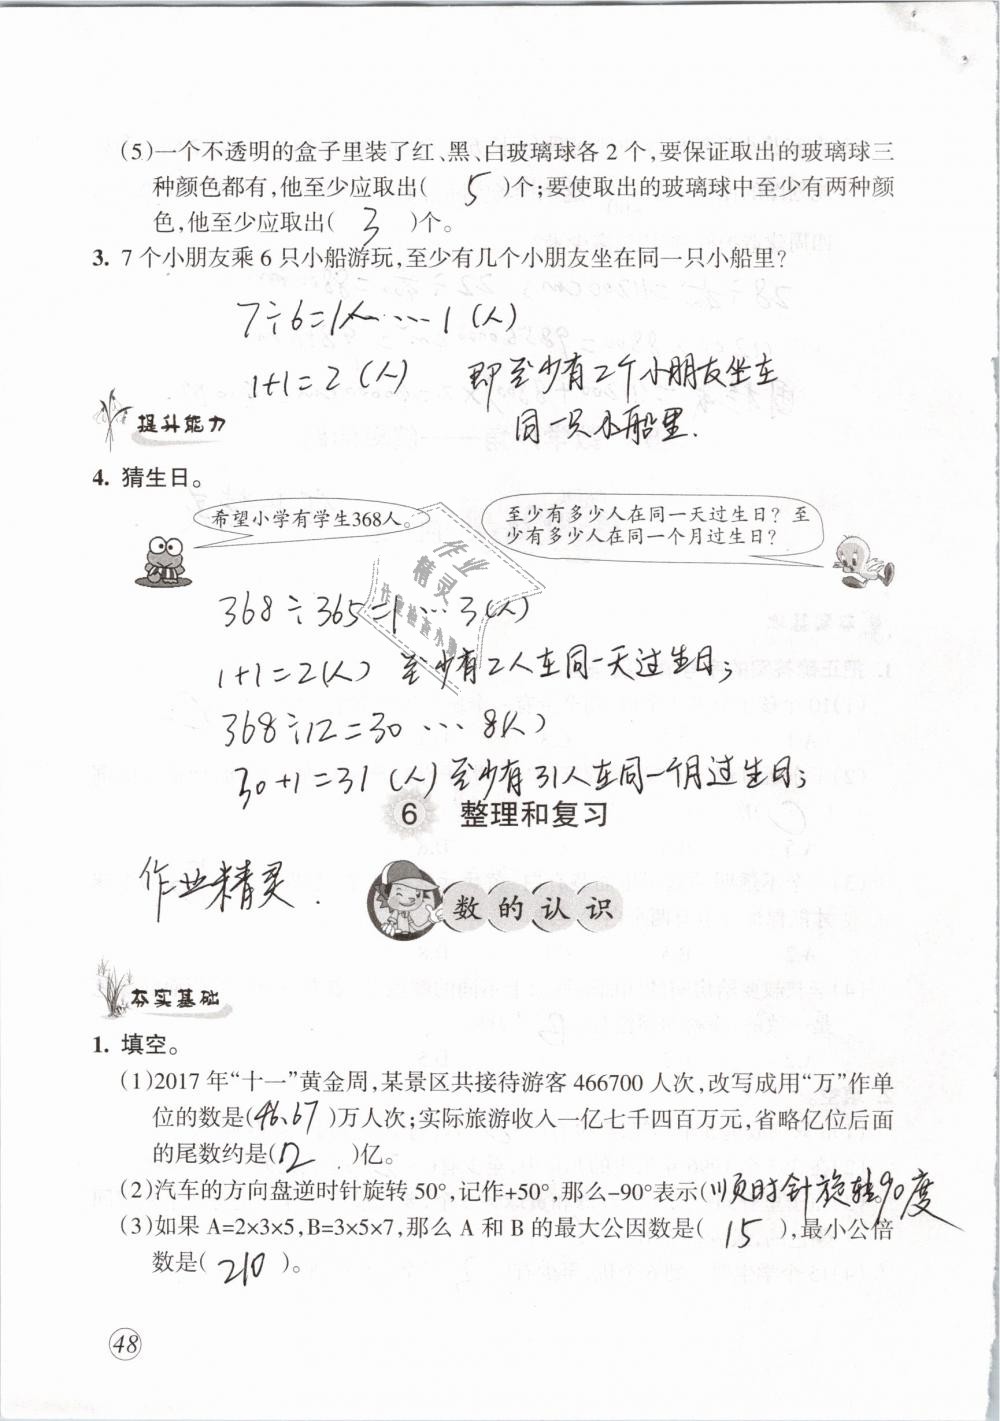 (5)一个不透明的盒子里装了红、黑、白玻璃球各2个,要保证取出的玻璃球三
种颜色都有,他至少应取出( 5 )个;要使取出的玻璃球中至少有两种颜
色,他至少应取出( 3 )个。
3. 7个小朋友乘6只小船游玩,至少有几个小朋友坐在同一只小船里?
7÷6=1人……1(人)
1+1=2(人) 即至少有2个小朋友坐在
同一只小船里.
提升能力
4. 猜生日。
希望小学有学生368人。
至少有多少人在同一天过生日?至
少有多少人在同一个月过生日?
作业
精灵
作业检查小助
368÷365=1…3(人)
1+1=2(人) 至少有2人在同一天过生日;
368÷12=30…8(人)
30+1=31(人)至少有31人在同一个月过生日;
6 整理和复习
作业精灵.
数的认识
夯实基础
1. 填空。
(1)2017年“十一”黄金周,某景区共接待游客466700人次,改写成用“万”作单
位的数是(46.67)万人次;实际旅游收入一亿七千四百万元,省略亿位后面
的尾数约是(2)亿。
(2)汽车的方向盘逆时针旋转50°,记作+50°,那么-90°表示(顺时针旋转90度
(3)如果A=2×3×5,B=3×5×7,那么A和B的最大公因数是( 15 ),最小公倍
数是( 210 )。
48